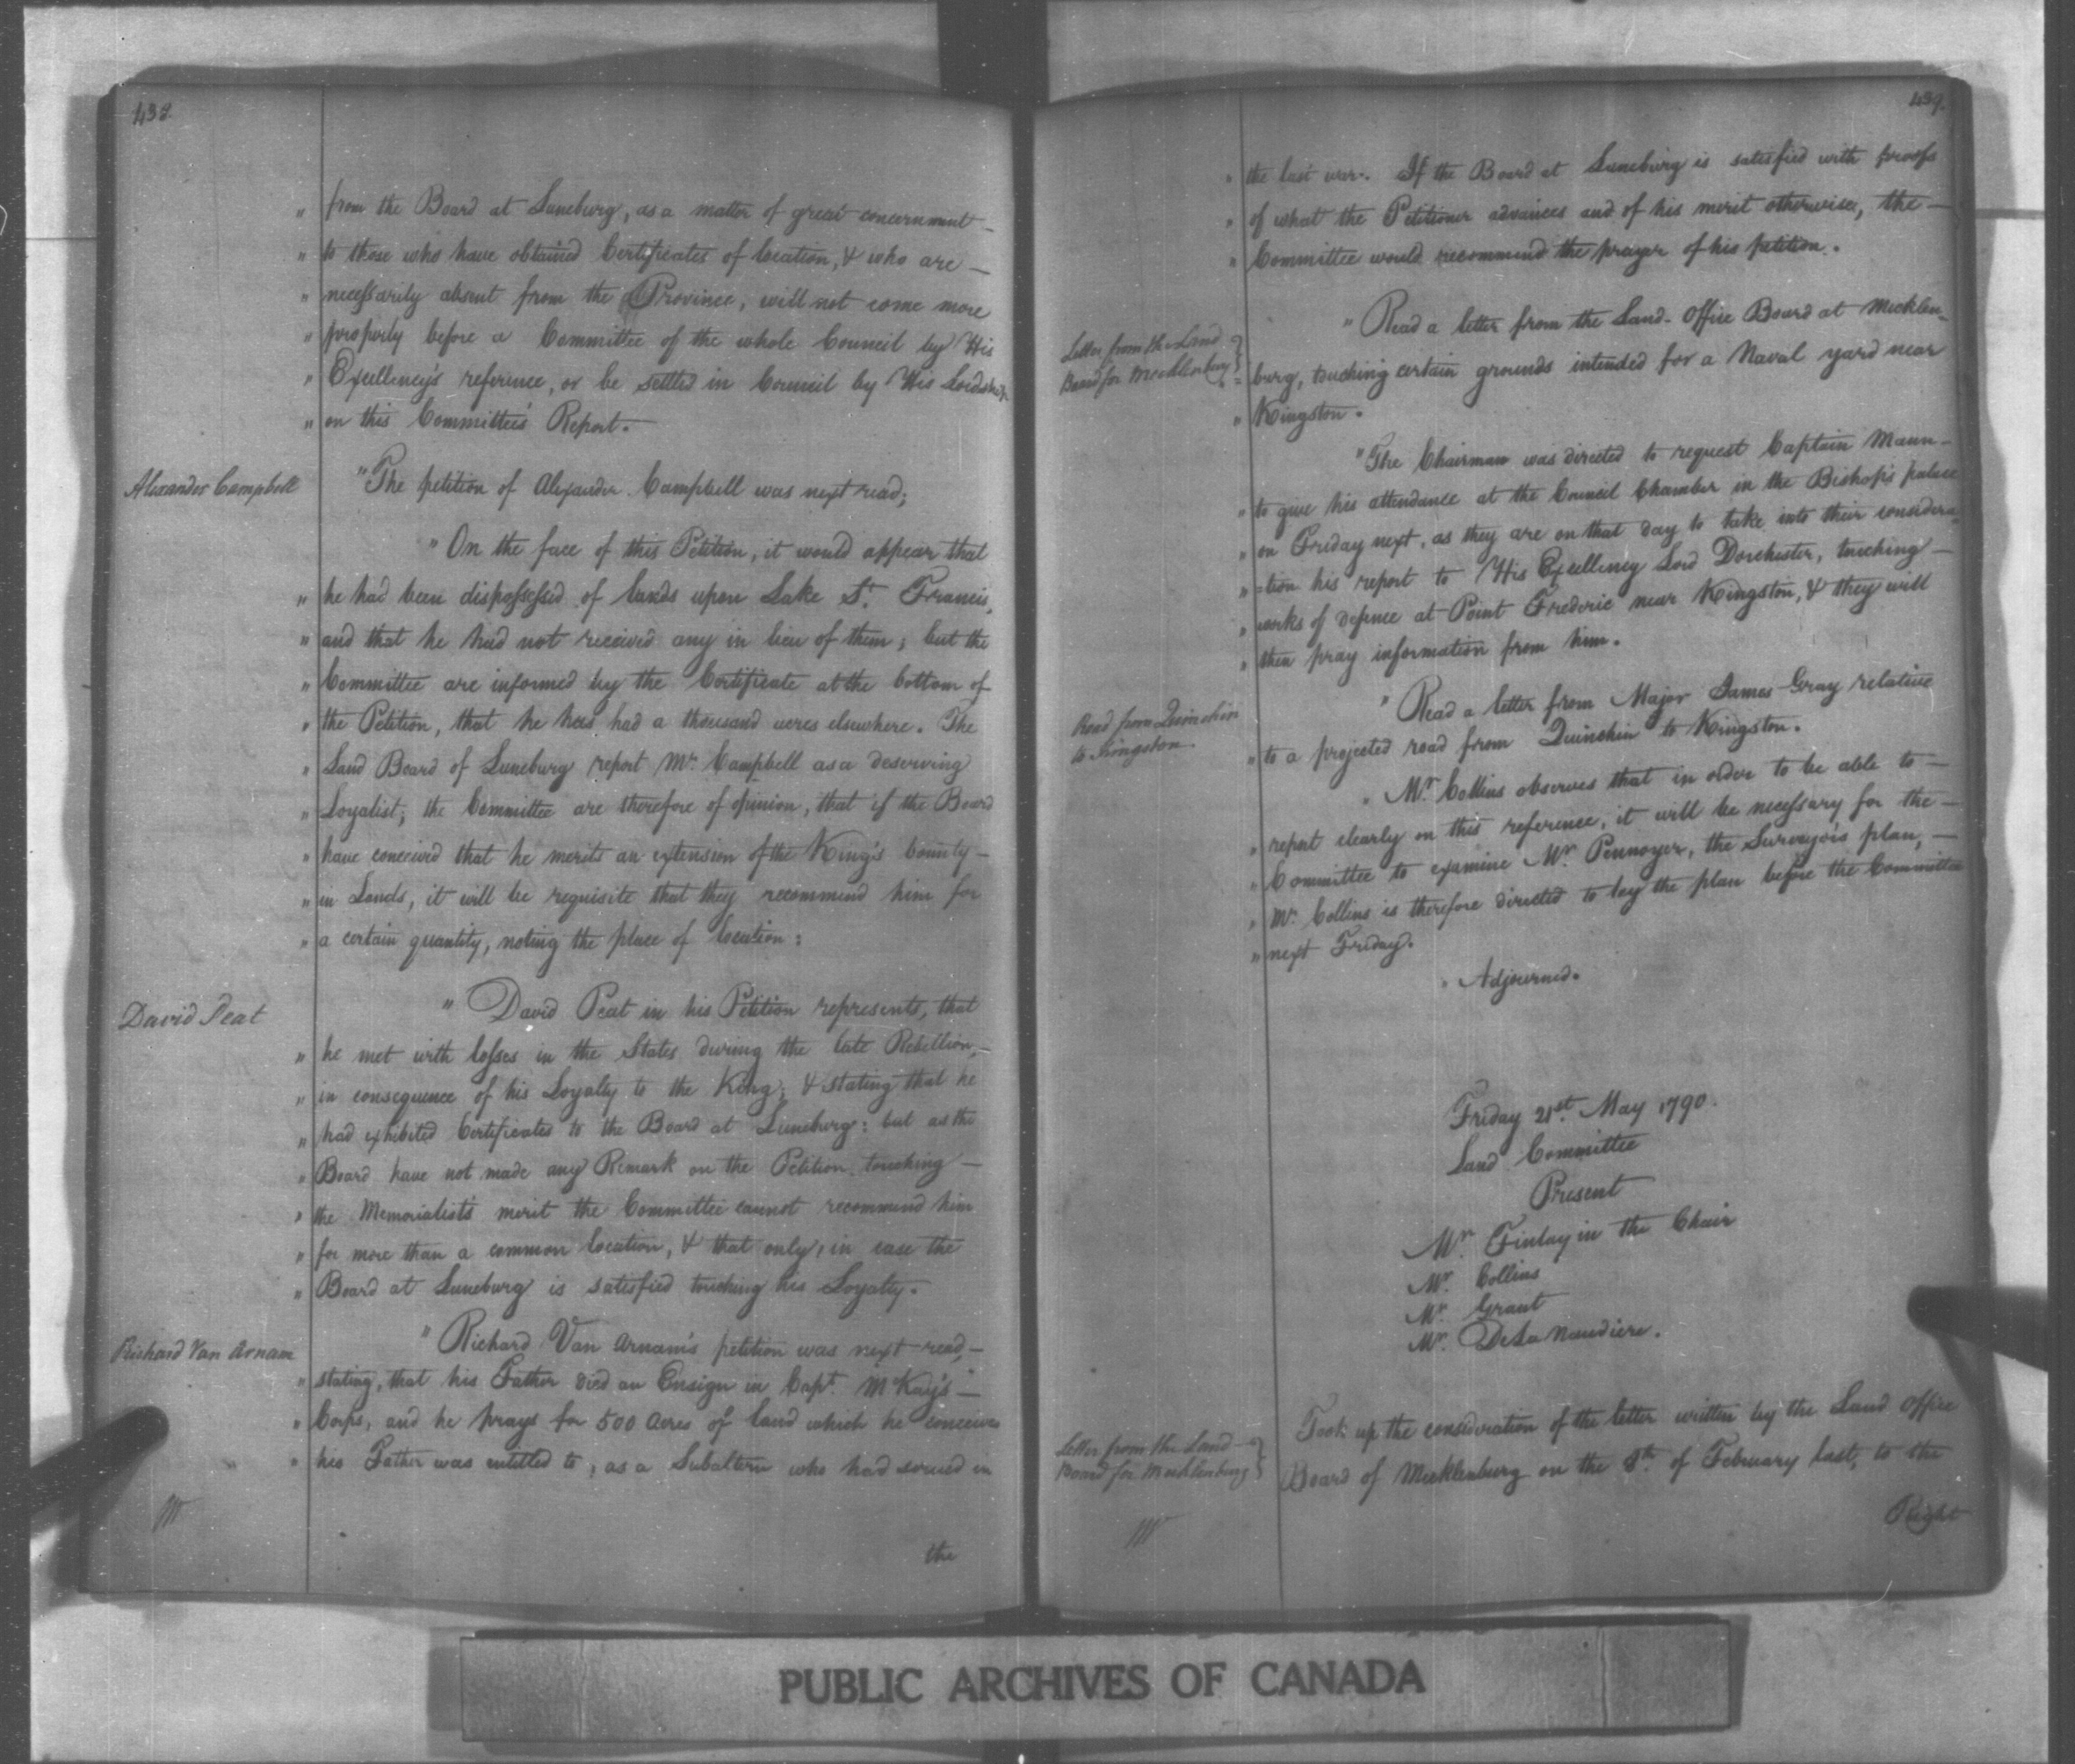 438.
" from the Board at Luneburg, as a matter of great concernment —
" to those who have obtained Certificates of location, & who are —
" necessarily absent from the Province, will not come more
" properly before a Committee of the whole Council by His
" Excellency's reference, or be settled in Council by His Lordship
" on this Committee's Report.
Alexander Campbell
" The petition of Alexander Campbell was next read;
" On the face of this Petition, it would appear that
" he had been dispossessed of lands upon Lake St. Francis,
" and that he had not received any in lieu of them; but the
" Committee are informed by the Certificate at the bottom of
" the Petition, that he has had a thousand acres elsewhere. The
" Land Board of Luneburg report Mr. Campbell as a deserving
" Loyalist; the Committee are therefore of opinion, that if the Board
" have conceived that he merits an extension of the King's bounty —
" in Lands, it will be requisite that they recommend him for
" a certain quantity, noting the place of location:
David Peat
" David Peat in his Petition represents, that
" he met with losses in the States during the late Rebellion, —
" in consequence of his Loyalty to the King; & stating that he
" had exhibited Certificates to the Board at Luneburg: but as the
" Board have not made any Remark on the Petition touching —
" the Memorialist's merit the Committee cannot recommend him
" for more than a common location, & that only, in case the
" Board at Luneburg is satisfied touching his Loyalty.
Richard Van Arnam
" Richard Van Arnam's petition was next read, —
" stating, that his Father died an Ensign in Capt. McKay's —
" Corps, and he prays for 500 Acres of land which he conceives
" his Father was entitled to, as a Subaltern who had served in
the
439.
" the last war. If the Board at Luneburg is satisfied with proofs
" of what the Petitioner advances and of his merit otherwise, the —
" Committee would recommend the prayer of his petition.
Letter from the Land
Board for Mecklenburg
" Read a letter from the Land-Office Board at Mecklen-
" burg, touching certain grounds intended for a Naval yard near
" Kingston.
" The Chairman was directed to request Captain Mann —
" to give his attendance at the Council Chamber in the Bishop's palace
" on Friday next, as they are on that day to take into their considera
" =tion his report to His Excellency Lord Dorchester, touching —
" works of defence at Point Frederic near Kingston, & they will
" then pray information from him.
Road from Quinchin
to Kingston.
" Read a letter from Major James Gray relative
" to a projected road from Quinchin to Kingston.
" Mr. Collins observes that in order to be able to —
" report clearly on this reference, it will be necessary for the —
" Committee to examine Mr. Pennoyer, the Surveyor's plan, —
" Mr. Collins is therefore directed to lay the plan before the Committee
" next Friday.
" Adjourned.
Friday 21st. May 1790.
Land Committee
Present
Mr. Finlay in the Chair
Mr. Collins
Mr. Grant
Mr. DeLa Naudiere.
Letter from the Land
Board for Mecklenburg
Took up the consideration of the letter written by the Land Office
Board of Mecklenburg on the 8th. of February last, to the
Right
PUBLIC ARCHIVES OF CANADA